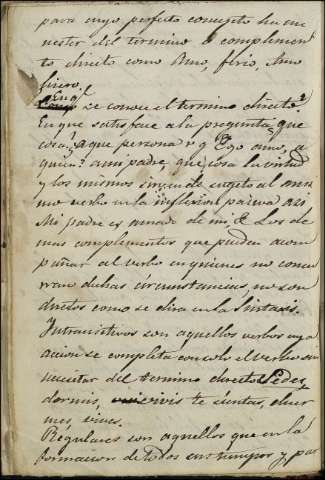 para cuyo perfecto concepto ha me
nester del termino o complemen
to directo como Amo, ferio, Amo
fiero.
se conoce el termino directo?
En que satisface a la pregunta que
cosa? a que persona v g Ego amo, a
quien? a mi padre, que cosa la virtud
y los mismos sirven de sugeto al mis
mo verbo en la inflexion pasiva asi
Mi padre es amado de mi & Los de
mas complementos que puedan acom
pañar al verbo en quienes no concu
rran dichas circunstancias, no son
directos como se dira en la Sintaxis.
Yntransitivos son aquellos verbos cuya
accion se completa con solo el verbo sin
necesitar del termino directo
dormis, vivis te sientas, duer
mes, vives.
Regulares son aquellos que en la
formacion de todos sus tiempos y per